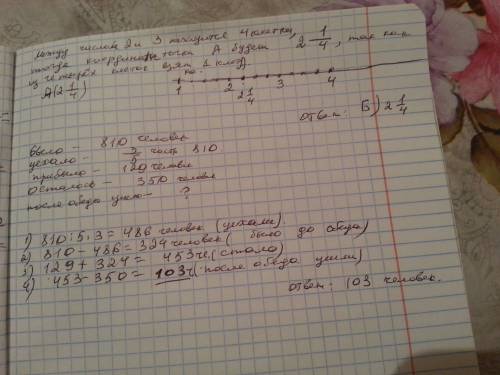 между числом 2 и 3 находится 4 клетки,
тогда координата точки А будет 2 1/4, так как
из четырёх клеток взят 1 клод
А(2 1/4)
1 2 2 1/4 3 4
ответ: Б) 2 1/4
было - 810 человек
уехало - 3/5 часть 810
прибыло - 129 человек
осталось - 350 человек
после обеда ушло - ?
1) 810:5·3=486 человек (уехали)
2) 810-486=324 человек (было до обеда)
3) 129+324= 453 че. (стало)
4) 453-350= 103ч (после обеда ушли)
ответ: 103 человек.